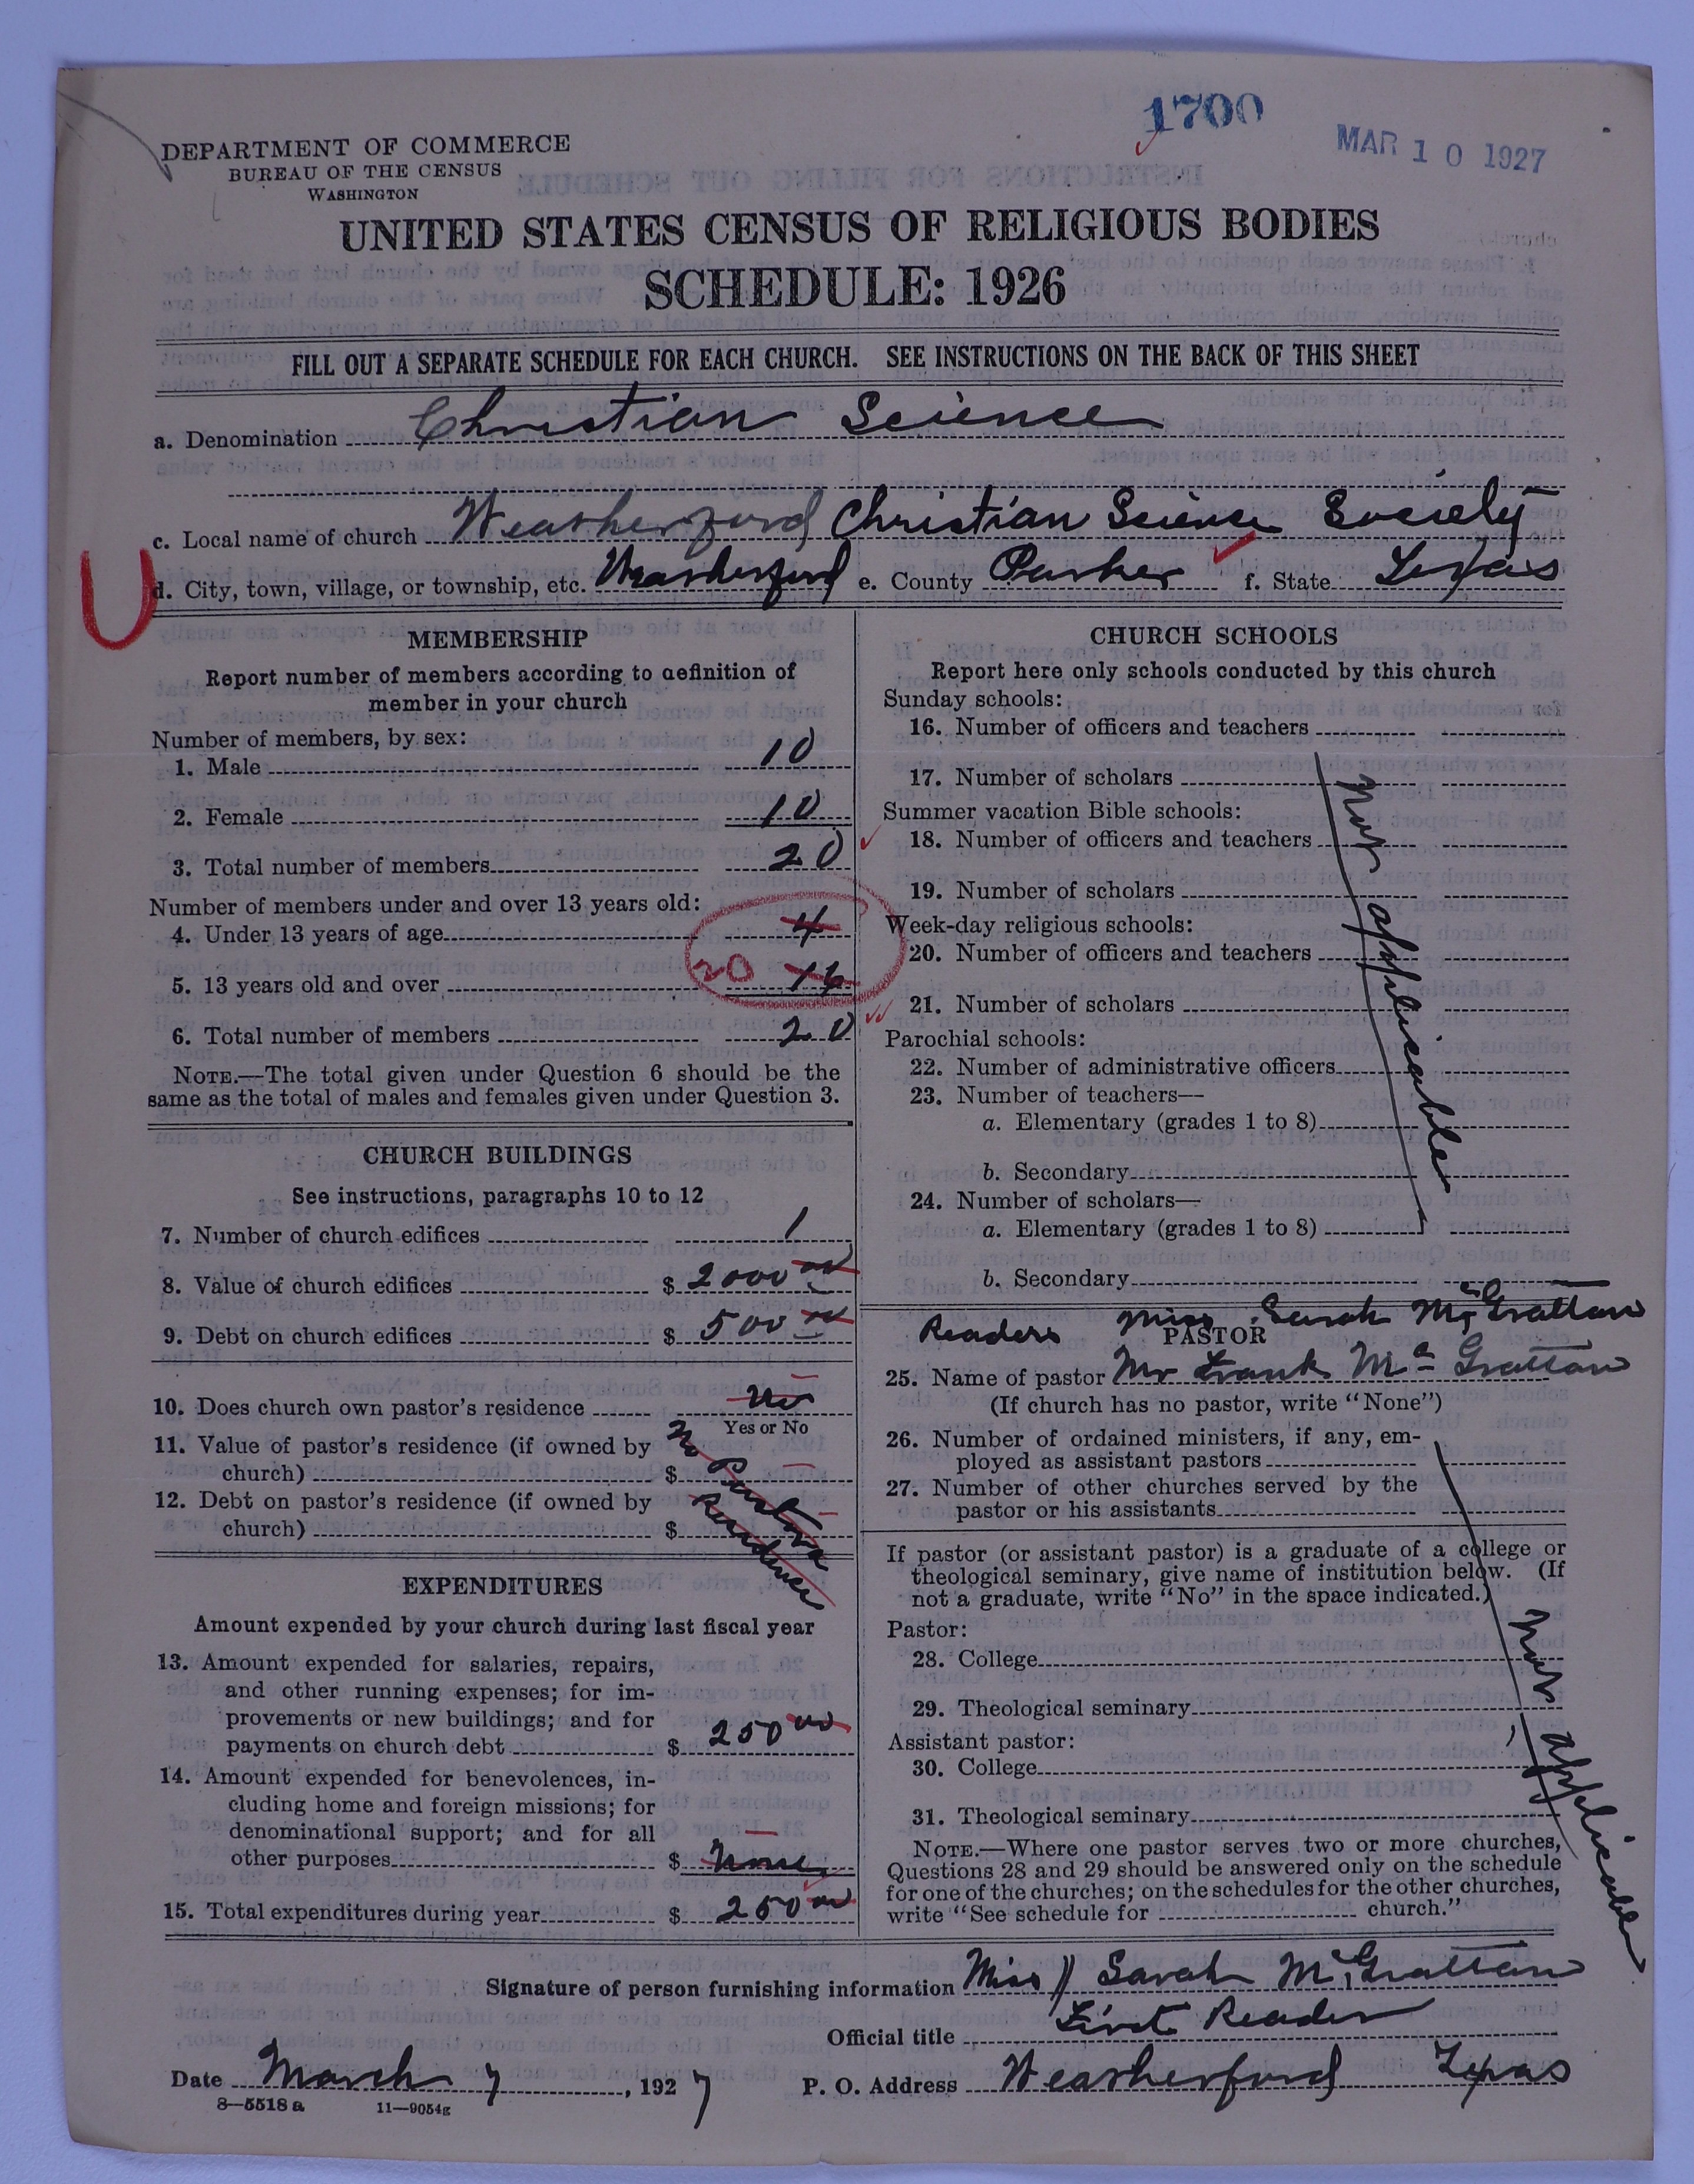 1700
MAR 10 1927
DEPARTMENT OF COMMERCE
BUREAU OF THE CENSUS
WASHINGTON
UNITED STATES CENSUS OF RELIGIOUS BODIES
SCHEDULE: 1926
FILL OUT A SEPARATE SCHEDULE FOR EACH CHURCH. SEE INSTRUCTIONS ON THE BACK OF THIS SHEET
a. Denomination Christian Science
c. Local name of church Weatherford Christian Science Society
U
d. City, town, village, or township, etc. Weatherford e. County Parker f. State Texas
MEMBERSHIP
Report number of members according to definition of
member in your church
Number of members, by sex:
1. Male 10
2. Female 10
3. Total number of members 20
Number of members under and over 13 years old:
4. Under 13 years of age 4
5. 13 years old and over 20 16
6. Total number of members 20
NOTE.—The total given under Question 6 should be the
same as the total of males and females given under Question 3.
CHURCH BUILDINGS
See instructions, paragraphs 10 to 12
7. Number of church edifices 1
8. Value of church edifices $ 2000 00
9. Debt on church edifices $ 500 00
10. Does church own pastor's residence No
Yes or No
11. Value of pastor's residence (if owned by
church) $
12. Debt on pastor's residence (if owned by
church) $
No Pastors
Residence
EXPENDITURES
Amount expended by your church during last fiscal year
13. Amount expended for salaries, repairs,
and other running expenses; for im-
provements or new buildings; and for
payments on church debt $ 250 00
14. Amount expended for benevolences, in-
cluding home and foreign missions; for
denominational support; and for all
other purposes $ None
15. Total expenditures during year $ 250 00
CHURCH SCHOOLS
Report here only schools conducted by this church
Sunday schools:
16. Number of officers and teachers
17. Number of scholars
Summer vacation Bible schools:
18. Number of officers and teachers
19. Number of scholars
Week-day religious schools:
20. Number of officers and teachers
21. Number of scholars
Parochial schools:
22. Number of administrative officers
23. Number of teachers—
a. Elementary (grades 1 to 8)
b. Secondary
24. Number of scholars—
a. Elementary (grades 1 to 8)
b. Secondary
Not applicable
Readers Miss Sarah McGrattan
PASTOR
25. Name of pastor Mr Frank McGrattan
(If church has no pastor, write "None")
26. Number of ordained ministers, if any, em-
ployed as assistant pastors
27. Number of other churches served by the
pastor or his assistants
If pastor (or assistant pastor) is a graduate of a college or
theological seminary, give name of institution below. (If
not a graduate, write "No" in the space indicated.)
Pastor:
28. College
29. Theological seminary
Assistant pastor:
30. College
31. Theological seminary
Not applicable
NOTE.—Where one pastor serves two or more churches,
Questions 28 and 29 should be answered only on the schedule
for one of the churches; on the schedules for the other churches,
write "See schedule for church."
Signature of person furnishing information Miss Sarah McGrattan
Official title First Reader
Date March 7, 1927 P. O. Address Weatherford Texas
8—5518 a 11—9054g